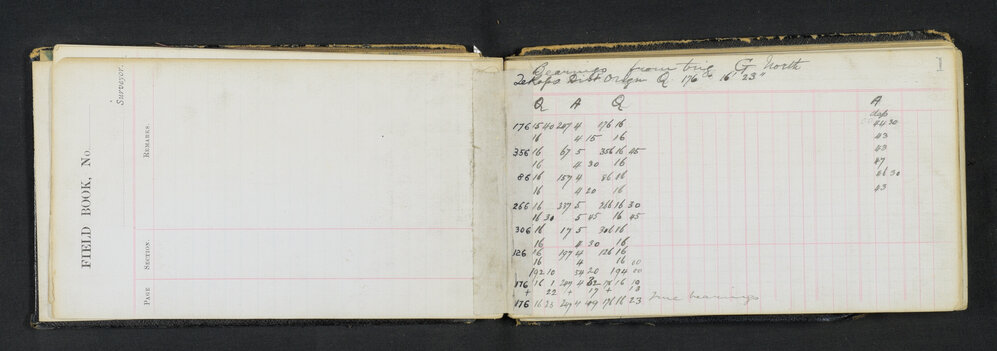 FIELD BOOK, No.
Surveyor.
REMARKS.
SECTION.
PAGE
1
Bearings from trig G North
Dist Origin Q. 176° 16' 23"
Q A Q A
dep
176 15 40 247 4 176 16 44 30
16 4 15 16 43
356 16 67 5 356 16 45 43
16 4 30 16 47
86 16 157 4 86 16 46 30
16 4 20 16 43
266 16 337 5 266 16 30
16 30 5 45 16 45
306 16 17 5 306 16
16 4 30 16
126 16 197 4 126 16
16 4 16 00
192 10 54 20 194 00
176 16 1 247 4 32 76 16 10
+ 22 + 17 + 13
176 16 23 247 4 49 76 16 23 True bearings